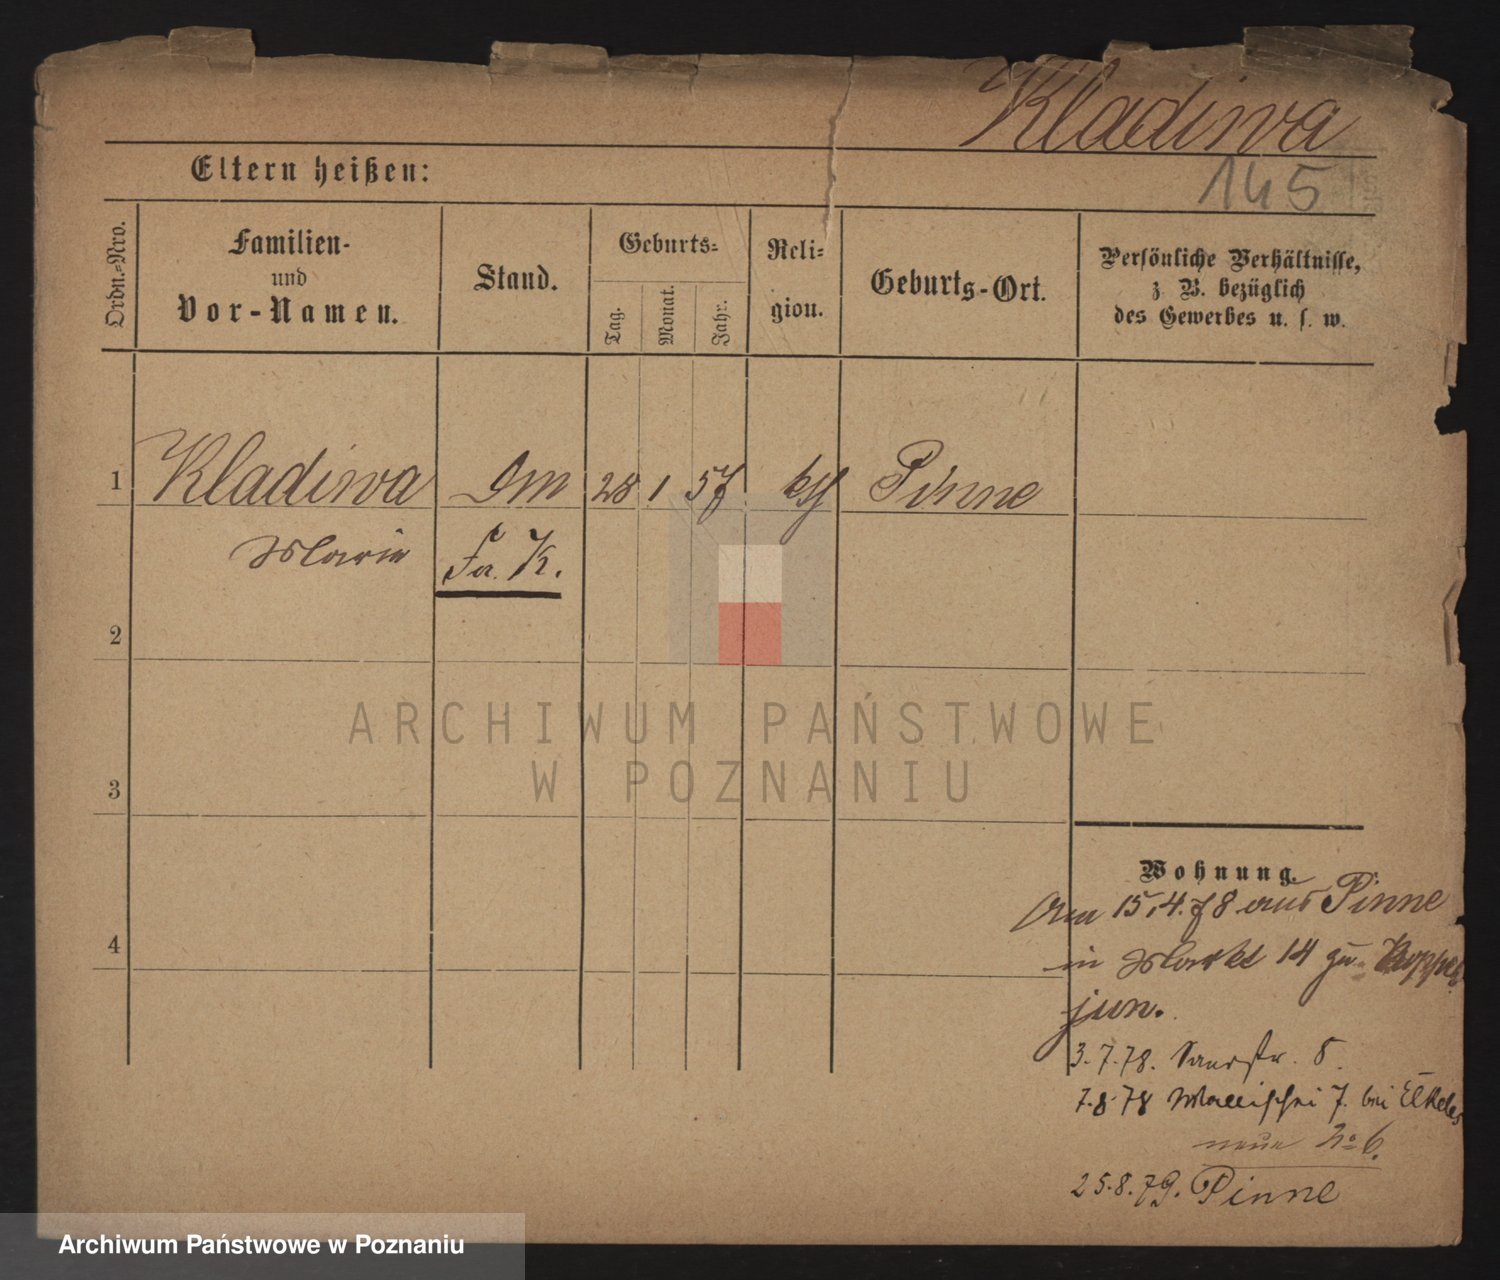 Kladiwa
Eltern heißen:
145
Ordn.=Nro.
Familien-
und
Vor-Namen.
Stand.
Geburts=
Tag.
Monat.
Jahr.
Reli=
gion.
Geburts-Ort.
Persönliche Verhältnisse,
z. B. bezüglich
des Gewerbes u. s. w.
1 Kladiwa Dm 28 1 57 kth Pinne
Marie Fa. K.
2
ARCHIWUM PAŃSTWOWE
W POZNANIU
3
Wohnung.
Am 15.4.78 aus Pinne
4
in Markt 14 zu
jun.
3.7.78. 8.
7.8.78 Wallischei 7. bei Elkeles
neue No 6.
25.8.79. Pinne
Archiwum Państwowe w Poznaniu